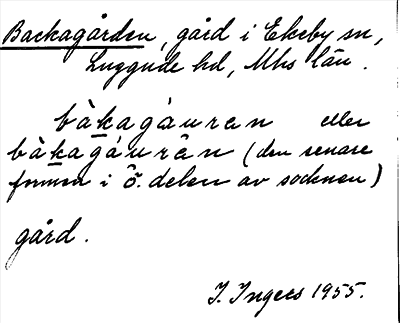 Backagården, gård i Ekeby sn,
Luggude hd, Mhs län.
bàkagáuren eller
bàkagáurên (den senare
formen i ö. delen av socknen)
gård.
I. Ingers 1955.